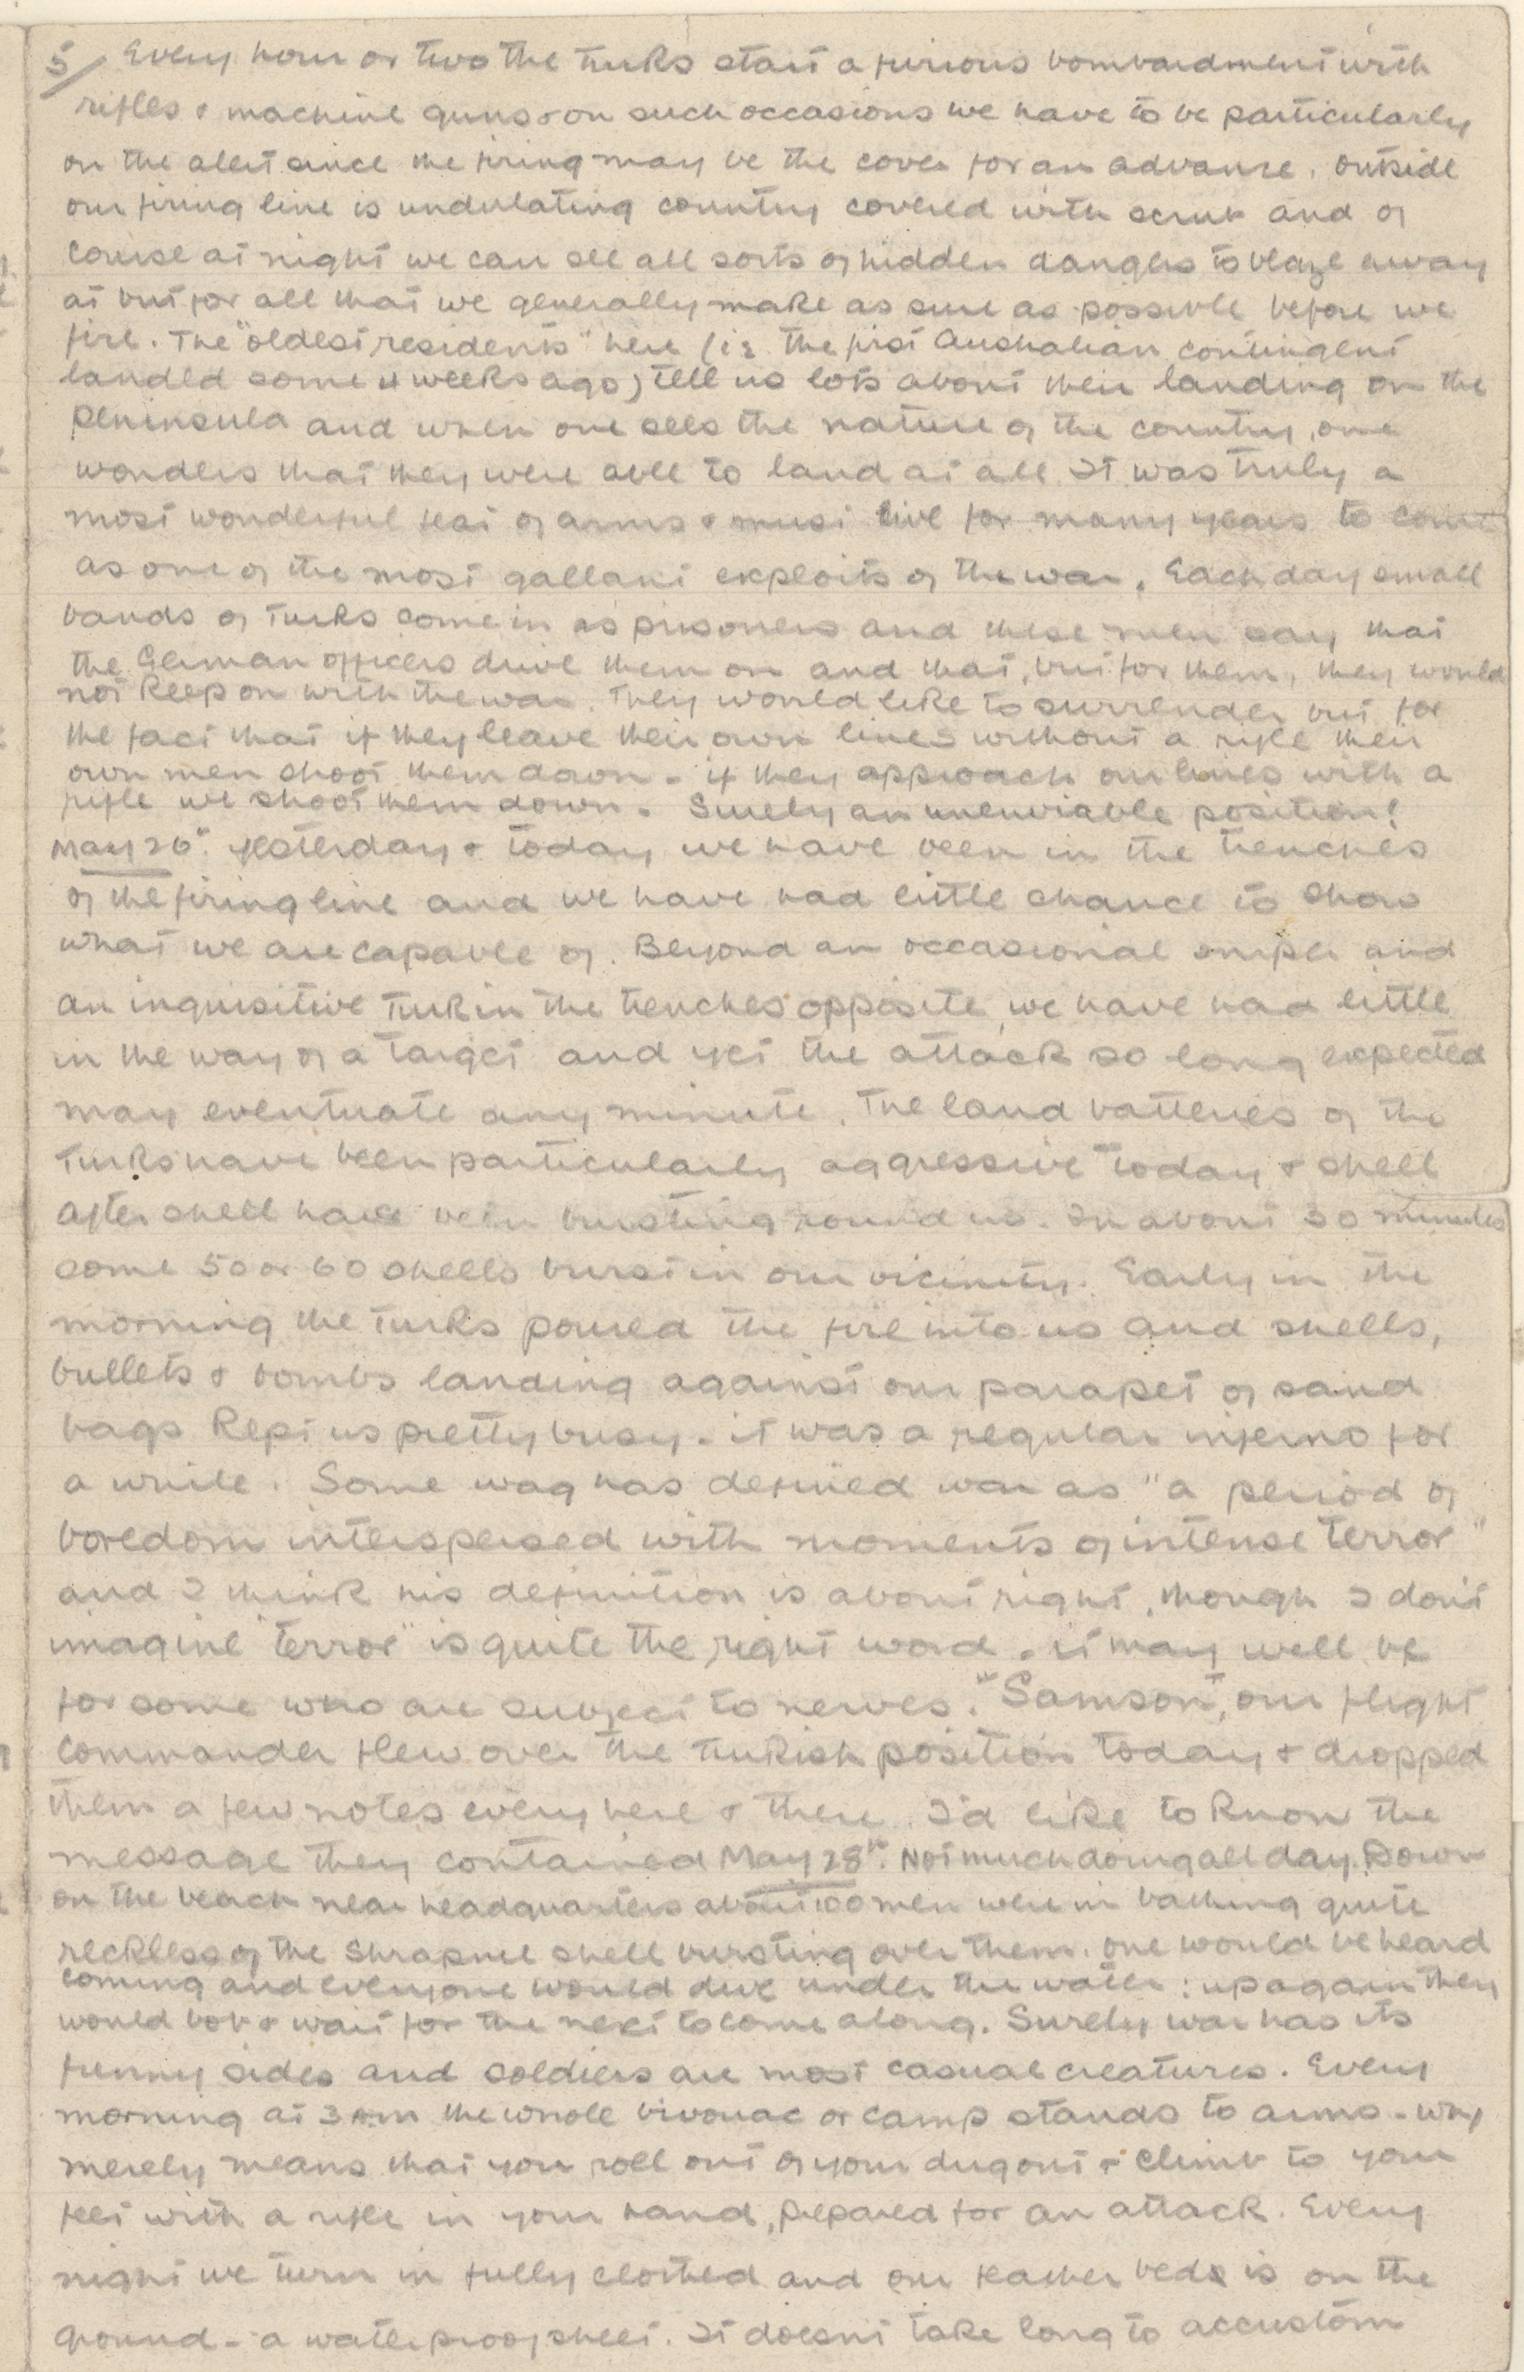 5/ Every hour or two the Turks start a furious bombardment with
rifles & machine guns & on such occasions we have to be particularly
on the alert since the firing may be the cover for an advance. Outside
our firing line is undulating country covered with scrub and of
course at night we can see all sorts of hidden dangers to blaze away
at but for all that we generally make as sure as possible before we
fire. The "oldest residents" here (ie the first Australian contingent
landed some 4 weeks ago) tell us lots about their landing on the
peninsula and when one sees the nature of the country, one
wonders that they were able to land at all. It was truly a
most wonderful feat of arms & must live for many years to come
as one of the most gallant exploits of the war. Each day small
bands of Turks come in as prisoners and these men say that
the German officers drive them on and that, but for them, they would
not keep on with the war. They would like to surrender but for
the fact that if they leave their own lines without a rifle their
own men shoot them down - if they approach our lines with a
rifle we shoot them down. Surely an unenviable position!
May 26th. Yesterday & today we have been in the trenches
of the firing line and we have had little chance to show
what we are capable of. Beyond an occasional sniper and
an inquisitive Turk in the trenches opposite, we have had little
in the way of a target and yet the attack so long expected
may eventuate any minute. The land batteries of the
Turks have been particularly aggressive today & shell
after shell have been bursting round us. In about 30 minutes
some 50 or 60 shells burst in our vicinity. Early in the
morning the Turks poured the fire into us and shells,
bullets & bombs landing against our parapet of sand
bags kept us pretty busy - it was a regular inferno for
a while. Some wag has defined war as "a period of
boredom interspersed with moments of intense terror"
and I think his definition is about right, though I don't
imagine "terror" is quite the right word - it may well be
for some who are subject to nerves. "Samson", our flight
commander flew over the Turkish position today & dropped
them a few notes every here & there. I'd like to know the
message they contained May 28th. Not much doing all day. Down
on the beach near headquarters about 100 men were in bathing quite
reckless of the shrapnel shell bursting over them. One would be heard
coming and everyone would dive under the water: up again they
would bob & wait for the next to come along. Surely war has its
funny sides and soldiers are most casual creatures. Every
morning at 3 am the whole bivouac or camp stands to arms - why
merely means that you roll out of your dugout & climb to your
feet with a rifle in your hand, prepared for an attack. Every
night we turn in fully clothed and our feather beds is on the
ground - a waterproof sheet. It doesn't take long to accustom